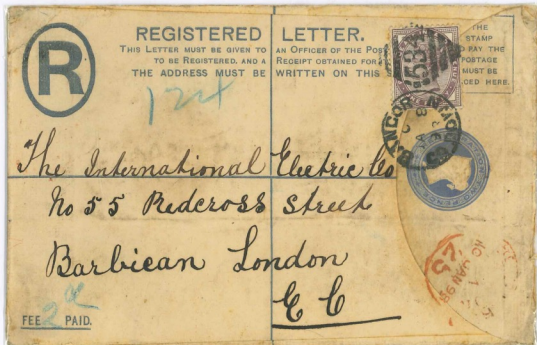 R
REGISTERED LETTER.
THIS LETTER MUST BE GIVEN TO AN OFFICER OF THE POST
TO BE REGISTERED, AND A RECEIPT OBTAINED FOR
THE ADDRESS MUST BE WRITTEN ON THIS
THE
STAMP
TO PAY THE
POSTAGE
MUST BE
HERE.
124
534
BANGOR
The International Electric Co
No 55 Redcross Street
Barbican London
E C
FEE 2d PAID.
JAN 98